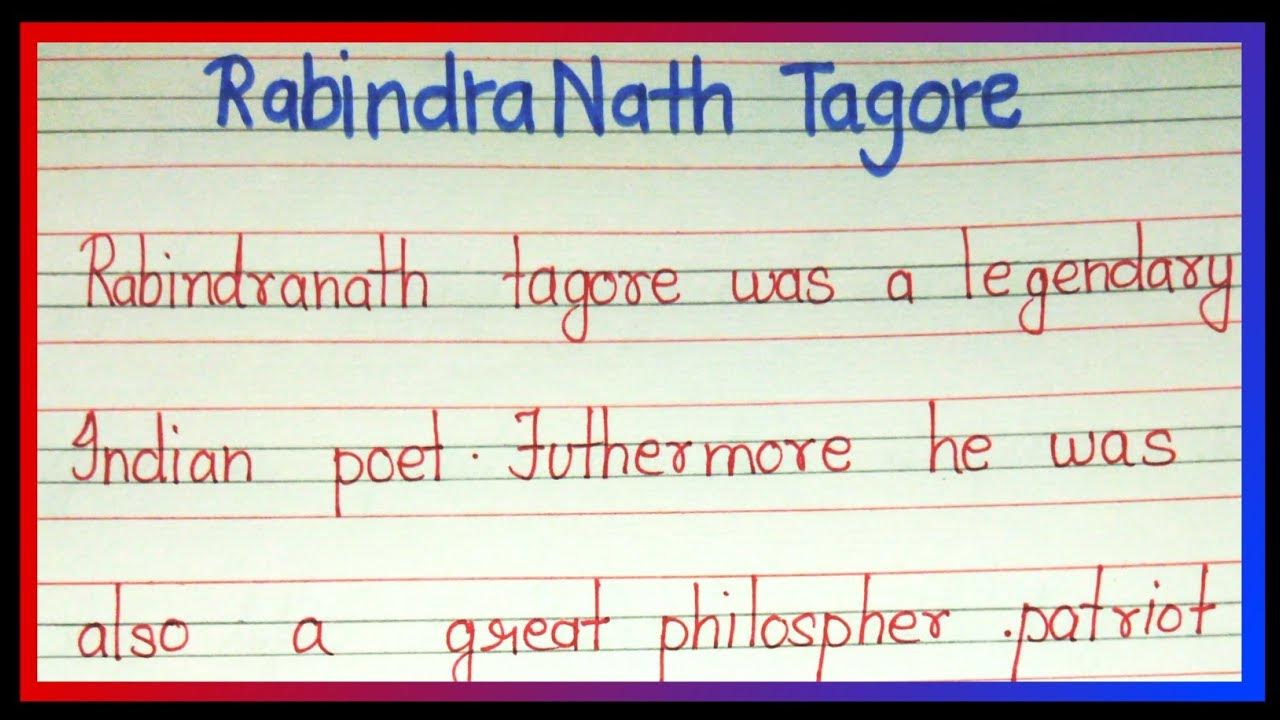 Rabindra Nath Tagore
Rabindranath tagore was a legendary
Indian poet. Futhermore he was
also a great philospher .patriot